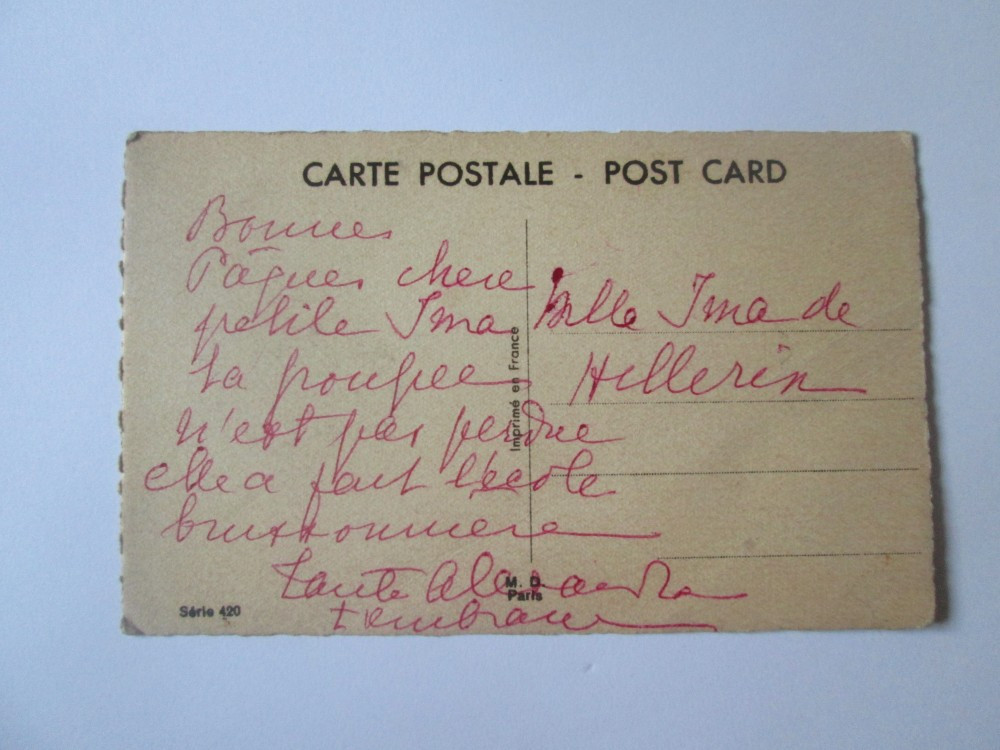 CARTE POSTALE - POST CARD
Bonnes
Pâques chere
petite Ima
la poupee
n'est pas perdue
elle a fait l'école
buissonniere
Tante Alexandra
t'embrasse
Mlle Ima de
Hellerin
Imprimé en France
M. D.
Paris
Série 420